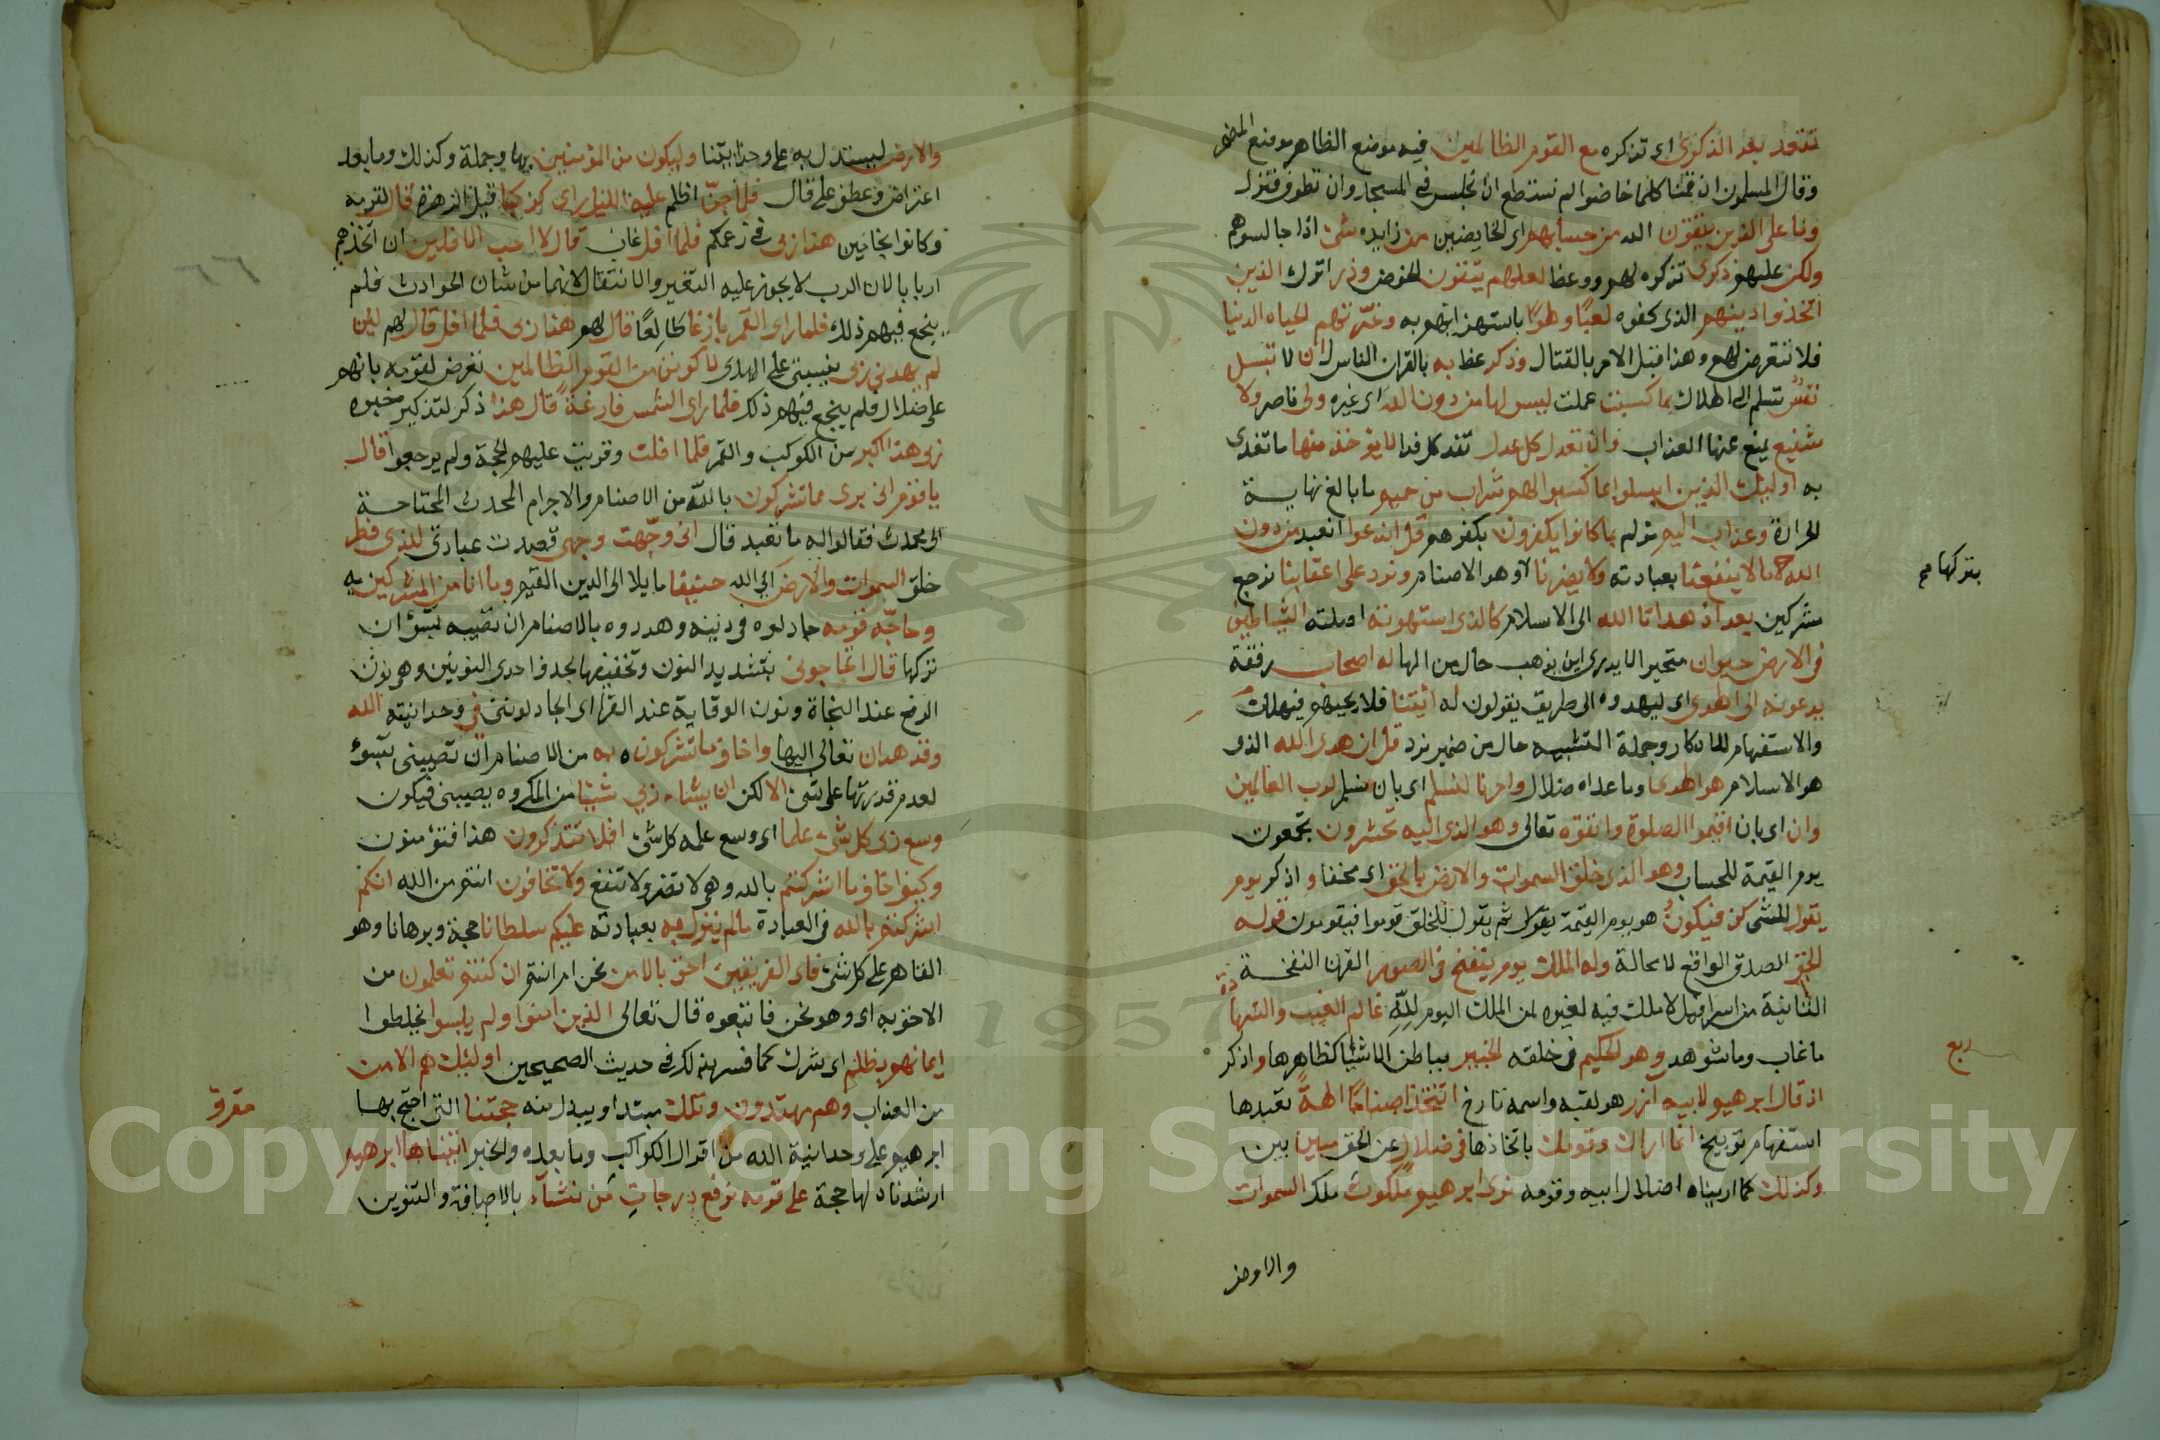 تقعد بعد الذكرى اى تذكره مع القوم الظالمين فيه موضع الظاهر موضع المضمر
وقال المسلمون ان قمنا كلما خاضوا لم نستطع ان نجلس في المسجد وان نطوف فنزل
وما على الذين يتقون الله من حسابهم اى الخايضين من زايده شئ اذا جالسوهم
ولكن عليهم ذكرى تذكره لهم ووعظا لعلهم يتقون الخوض وذر اترك الذين
اتخذوا دينهم الذى كلفوه لعبا ولهوا باستهزائهم به وغرتهم الحياه الدنيا
فلا تتعرض لهم وهذا قبل الامر بالقتال وذكر عظ به بالقران الناس ان لا تبسل
نفس تسلم الى الهلاك بما كسبت عملت ليس لها من دون الله اى غيره ولى ناصر ولا
شفيع يمنع عنها العذاب وان تعدل كل عدل تفد كل فدا لا يؤخذ منها ما تفدى
به اوليك الذين ابسلوا بما كسبوا لهم شراب من حميم ما بالغ نهاية
الحرارة وعذاب اليم مؤلم بما كانوا يكفرون بكفرهم قل اندعوا انعبد من دون
الله ما لا ينفعنا بعبادته ولا يضرنا وهو الاصنام ونرد على اعقابنا نرجع
بتركها صح
مشركين بعد اذ هدانا الله الى الاسلام كالذى استهوته اضلته الشياطين
فى الارض حيران متحيرا لا يدرى اين يذهب حال من الها له اصحاب رفقة
يدعونه الى الهدى اى ليهدوه الى طريق يقولون له ائتنا فلا يجيبهم فيهلك
والاستفهام للانكار وجملة التشبيه حال من ضمير نرد قل ان هدى الله الذى
هو الاسلام هو الهدى وما عداه ضلال وامرنا لنسلم اى بان نسلم لرب العالمين
وان اى بان اقيموا الصلوة واتقوه تعالى وهو الذى اليه تحشرون تجمعون
يوم القيمة للحساب وهو الذى خلق السموات والارض بالحق اى محقا واذكر يوم
يقول للشى كن فيكون هو يوم القيمة يقول ثم يقول للخلق قوموا فيقومون قوله
الحق الصدق الواقع لا محالة وله الملك يوم ينفخ فى الصور القرن النفخة
الثانية من اسرافيل لا ملك فيه لغيره لمن الملك اليوم لله عالم الغيب والشهادة
ما غاب وما شوهد وهو الحكيم فى خلقه الخبير بباطن الاشيا كظاهرها واذكر
ربع
اذ قال ابرهيم لابيه آزر هو لقبه واسمه تارخ اتتخذ اصناما الهة تعبدها
استفهام توبيخ انى اراك وقومك باتخاذها فى ضلال عن الحق مبين بين
وكذلك كما اريناه اضلال ابيه وقومه نرى ابرهيم ملكوت ملك السموات
والارض
والارض ليستدل به على وحدانيتنا وليكون من الموقنين بها وجملة وكذلك وما بعد
اعتراض وعطف على قال فلما جن اظلم عليه الليل راى كوكبا قيل الزهرة قال لقومه
وكانوا نجامين هذا ربى فى زعمكم فلما افل غاب قال لا احب الافلين ان اتخذهم
اربابا لان الرب لا يجوز عليه التغير والانتقال لانهما من شان الحوادث فلم
ينجع فيهم ذلك فلما راى القمر بازغا طالعا قال لهم هذا ربى فلما افل قال لهم لئن
لم يهدنى ربى يثبتنى على الهدى لاكونن من القوم الظالمين تعرض لقومه بانهم
على ضلال فلم ينجع فيهم ذلك فلما راى الشمس بازغة قال هذا ذكر لتذكير خبره
ربى هذا اكبر من الكوكب والقمر فلما افلت وقويت عليهم الحجة ولم يرجعوا قال
يا قوم انى برى مما تشركون بالله من الاصنام والاجرام المحدث المحتاجة
الى محدث فقالوا له ما تعبد قال انى وجهت وجهى قصدت عبادتى للذى فطر
خلق السموات والارض اى الله حنيفا مايلا الى الدين القيم وما انا من المشركين به
وحاجه قومه جادلوه فى دينه وهددوه بالاصنام ان تصيبه بسوء ان
تركها قال اتحاجونى بتشديد النون وتخفيفها بحذف احدى النونين وهو نون
الرفع عند النحاة ونون الوقاية عند القرا اى اتجادلوننى فى وحدانيته الله
وقد هدان تعالى اليها ولا اخاف ما تشركون به من الاصنام ان تصيبنى بسوء
لعدم قدرتها على شئ الا لكن ان يشاء ربى شيئا من المكروه يصيبنى فيكون
وسع ربى كل شئ علما اى وسع علمه كل شئ افلا تتذكرون هذا فتؤمنون
وكيف اخاف ما اشركتم بالله وهى لا تضر ولا تنفع ولا تخافون انتم من الله انكم
اشركتم بالله فى العبادة ما لم ينزل به بعبادته عليكم سلطانا حجة وبرهانا وهو
القاهر على كل شئ فاى الفريقين احق بالامن نحن ام انتم ان كنتم تعلمون من
الاحق به اى وهو نحن فاتبعوه قال تعالى الذين امنوا ولم يلبسوا يخلطوا
ايمانهم بظلم اى شرك كما فسر بذلك فى حديث الصحيحين اوليك هم الامن
من العذاب وهم مهتدون وتلك مبتدا ويبدل منه حجتنا التى احتج بها
مقروة
ابرهيم على وحدانية الله من افول الكواكب وما بعده والخبر اتيناها ابرهيم
ارشدناه لها حجة على قومه نرفع درجات من نشآء بالاضافة والتنوين
1957
Copyright © King Saud University